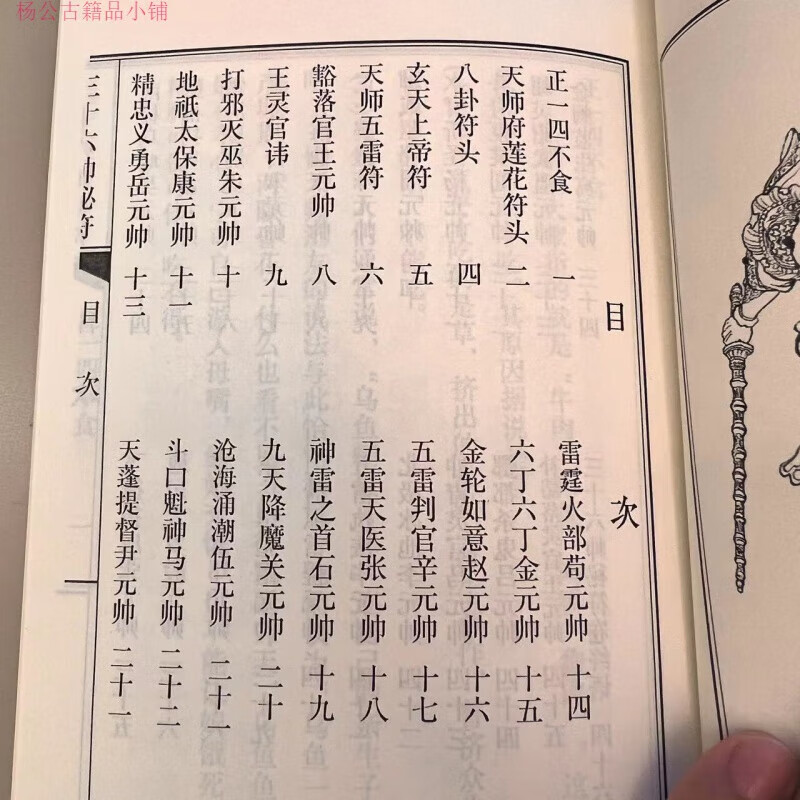 杨公古籍品小铺
目次
正一四不食 一
天师府莲花符头 二
八卦符头 四
玄天上帝符 五
天师五雷符 六
豁落官王元帅 八
王灵官讳 九
打邪灭巫朱元帅 十
地祇太保康元帅 十一
精忠义勇岳元帅 十三
雷霆火部苟元帅 十四
六丁六丁金元帅 十五
金轮如意赵元帅 十六
五雷判官辛元帅 十七
五雷天医张元帅 十八
神雷之首石元帅 十九
九天降魔关元帅 二十
沧海涌潮伍元帅 二十一
斗口魁神马元帅 二十二
天蓬提督尹元帅 二十一
三十六帅秘符 目次